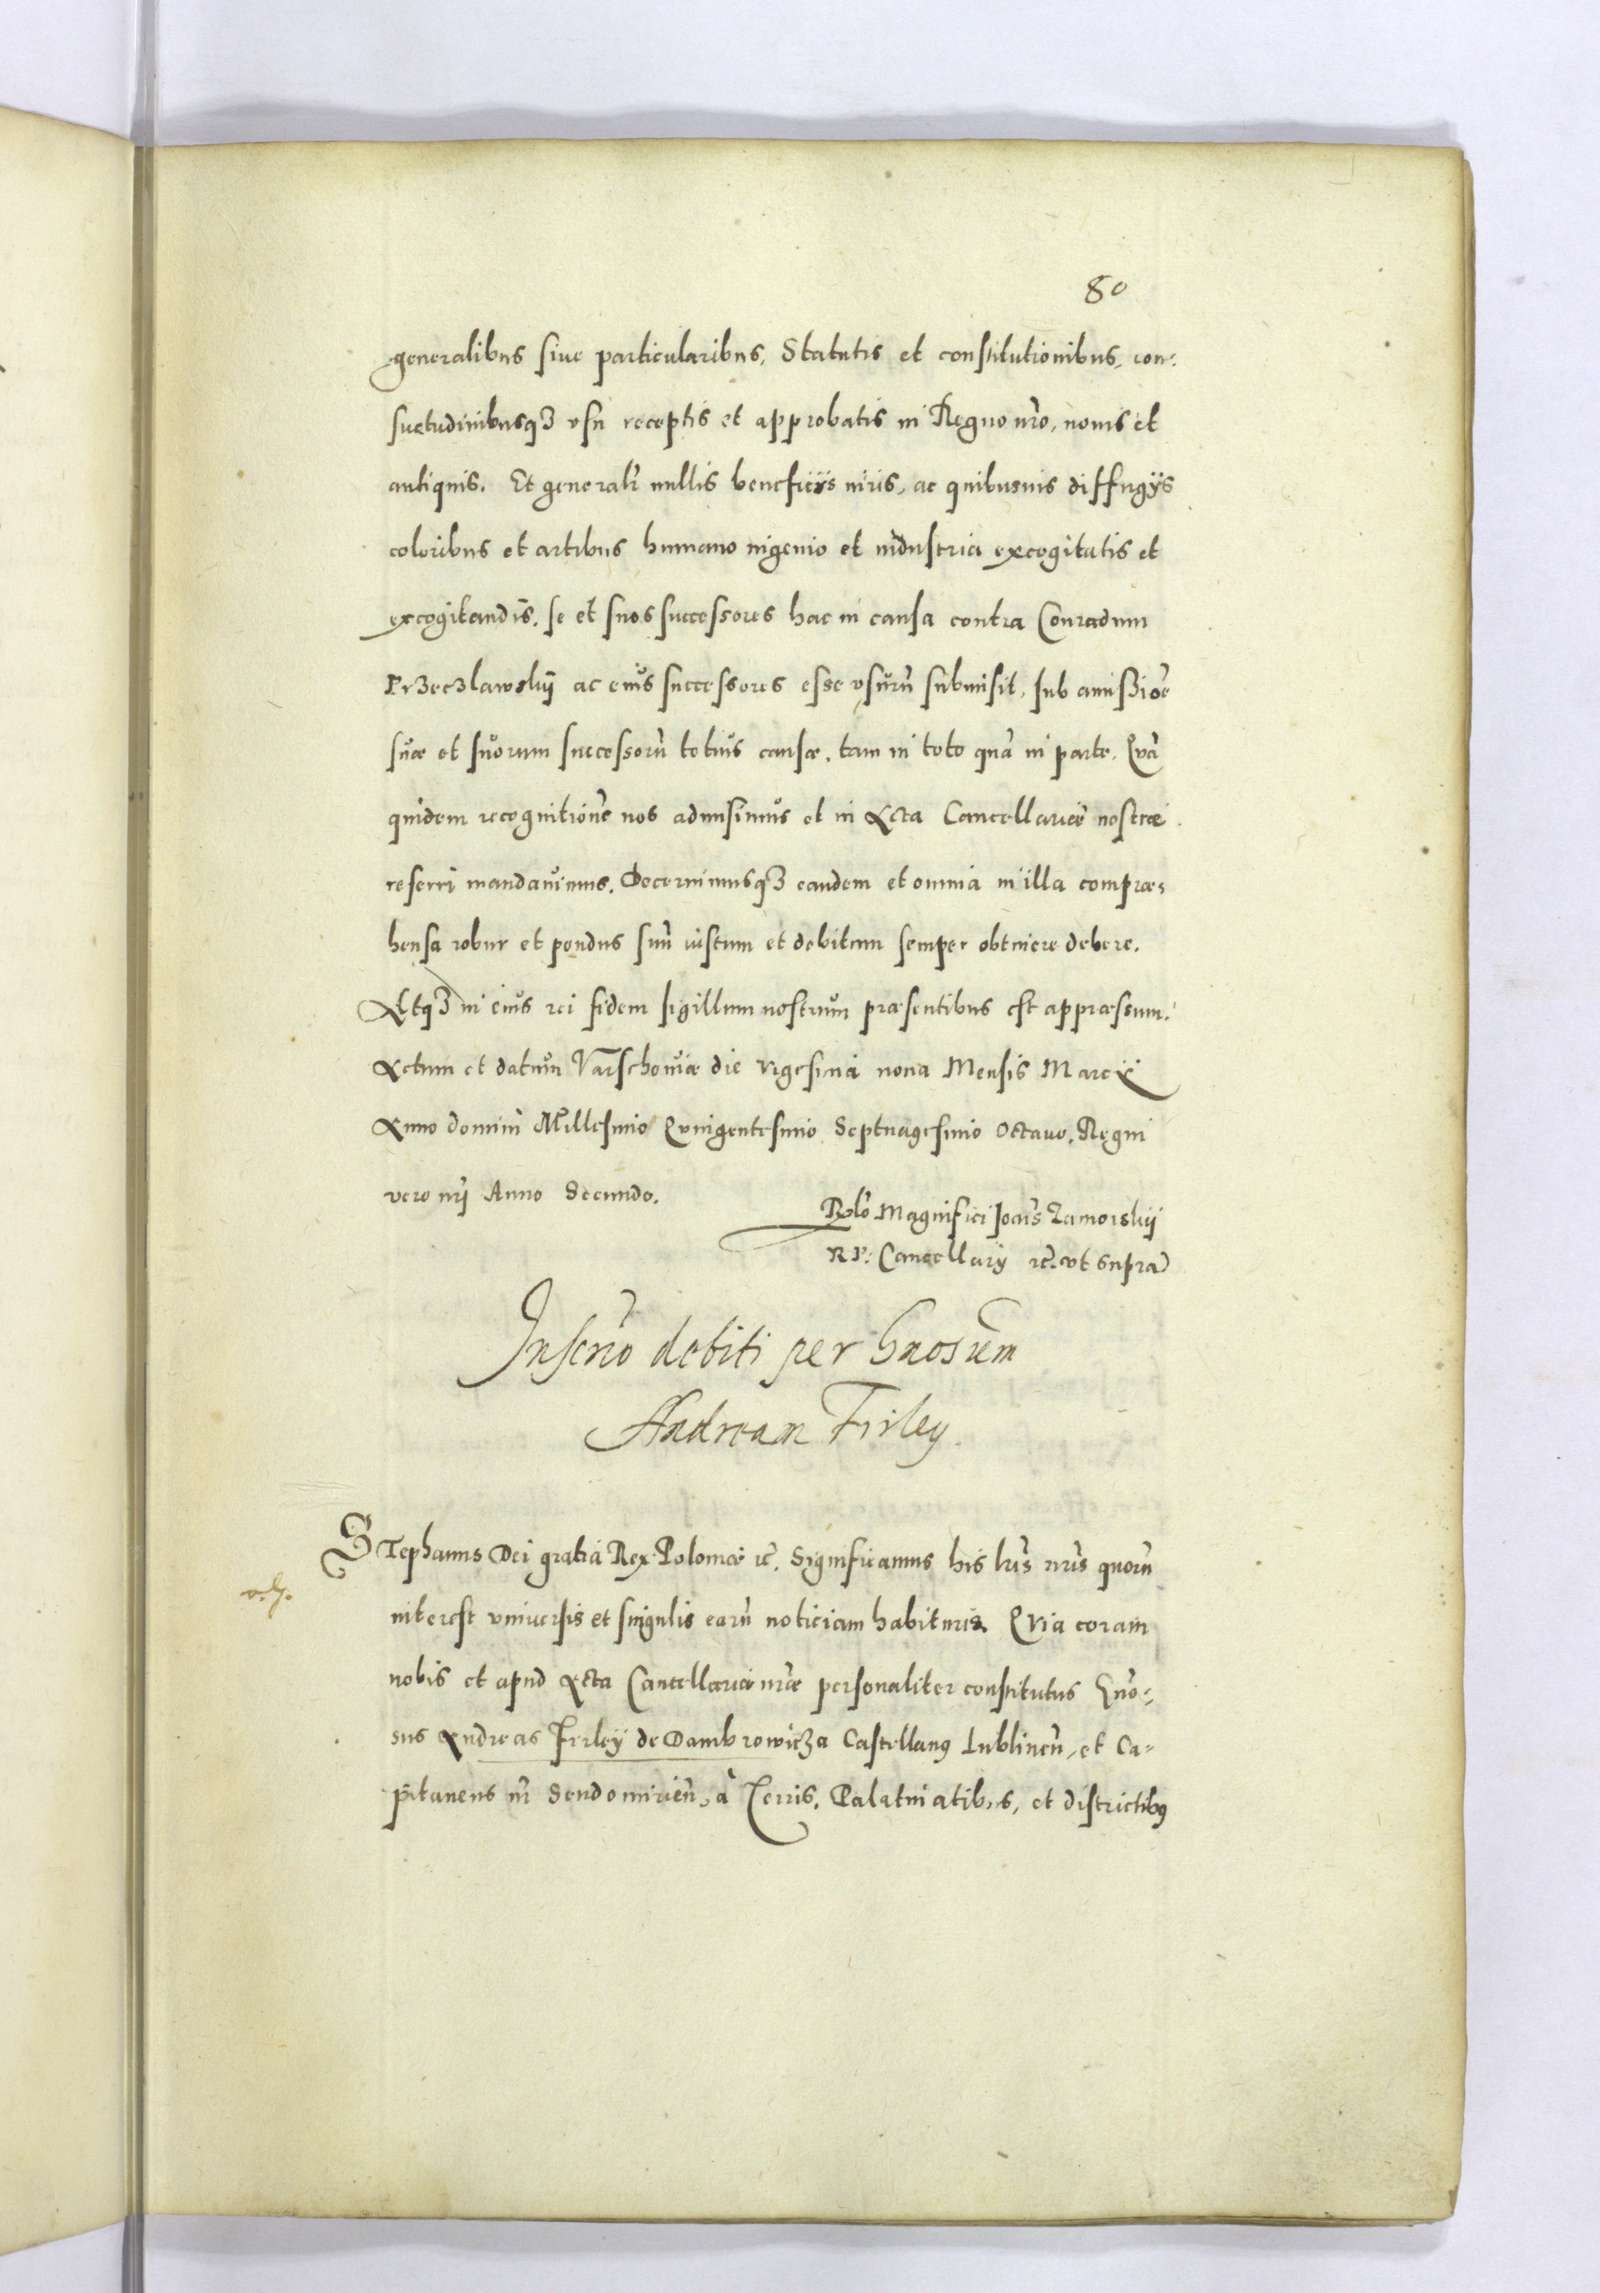 80
generalibus siue particularibus, Statutis et constitutionibus, con-
suetudinibusq3 usu receptis et approbatis in Regno nr̃o, nouis et
antiquis. Et generalr̃ nullis beneficijs iuris, ac quibusuis diffugijs
coloribus et artibus humano ingenio et industria excogitatis et
excogitandis, se et suos successores hac in causa contra Conradum
Przeczlawskij ac eius successores esse vsurũ submisit, sub amissiõe
suæ et suorum successorũ totius causæ, tam in toto quã in parte. Quã
quidem recognitionẽ nos admisimus et in Acta Cancellariæ nostræ
referri mandauimus. Decernimusq3 eandem et omnia in illa compræ-
hensa robur et pondus suũ iustum et debitum semper obtinere debere.
Atq3 in eius rei fidem sigillum nostrum præsentibus est appræssum.
Actum et datum Varschouiæ die vigesima nona Mensis Marcij
Anno domini Millesimo Quingentesimo Septuagesimo Octauo, Regni
vero nr̃i Anno Secundo.
Rel̃o Magnifici Joañis Zamoiskij
R P: Cancellarij etc. vt supra
Inscrio debiti per Gnosum
Andream Firley
STephanus Dei gratia Rex Poloniæ etc. Significamus his lr̃is nr̃is quorũ
v. g.
interest vniuersis et singulis earũ noticiam habituris. Quia coram
nobis et apud Acta Cancellariæ nr̃æ personaliter constitutus Gnõ-
sus Andreas Firleÿ de Dambrowicza Castellanus Lublinen̄, et Ca-
pitaneus nr̃ Sendomirien̄, à Terris, Palatinatibus, et districtibus